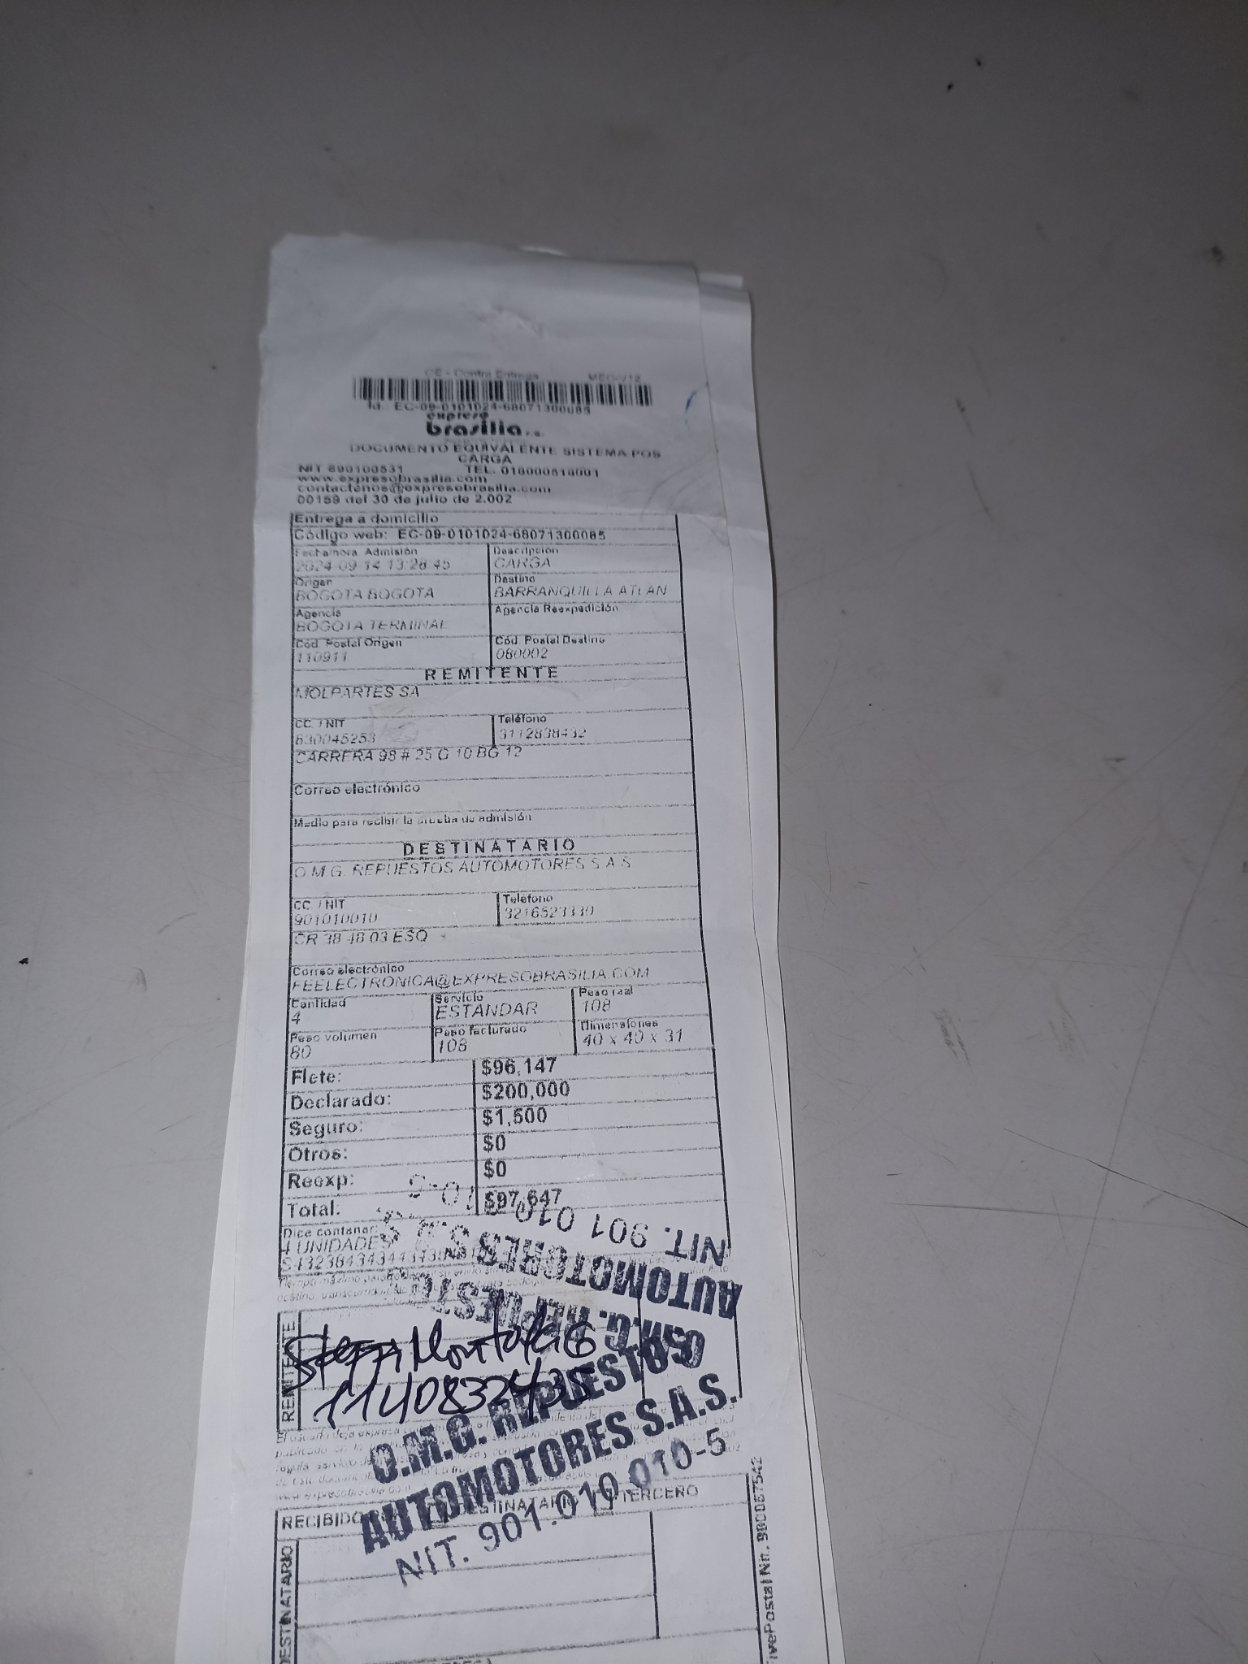 CE - Contra Entrega
Id.: EC-09-0101024-68071300085
expreso
brasilia
DOCUMENTO EQUIVALENTE SISTEMA POS
CARGA
NIT 890100531 TEL. 018000518001
www.expresobrasilia.com
contactenos@expresobrasilia.com
00159 del 30 de julio de 2.002
Entrega a domicilio
Código web: EC-09-0101024-68071300085
Fecha/hora Admisión Descripción
2024-09-14 13:28:45 CARGA
Origen Destino
BOGOTA BOGOTA BARRANQUILLA ATLAN
Agencia Agencia Reexpedición
BOGOTA TERMINAL
Cód. Postal Origen Cód. Postal Destino
110911 080002
REMITENTE
MOLPARTES SA
CC. / NIT Teléfono
830045253 3112838432
CARRERA 98 # 25 G 10 BG 12
Correo electrónico
Medio para recibir la prueba de admisión
DESTINATARIO
O.M.G. REPUESTOS AUTOMOTORES S.A.S
CC. / NIT Teléfono
901010010 3216523339
CR 38 48 03 ESQ
Correo electrónico
FEELECTRONICA@EXPRESOBRASILIA.COM
Cantidad Servicio Peso real
4 ESTANDAR 108
Peso volumen Peso facturado Dimensiones
80 108 40 x 40 x 31
Flete: $96,147
Declarado: $200,000
Seguro: $1,500
Otros: $0
Reexp: $0
Total: $97,647
Dice contener:
4 UNIDADES
NIT. 901 010
AUTOMOTORES S.A.S
O.M.G. REPUESTOS
REMITENTE
O.M.G. REPUESTOS
AUTOMOTORES S.A.S.
NIT. 901.010.010-5
RECIBIDO DESTINATARIO TERCERO
DESTINATARIO